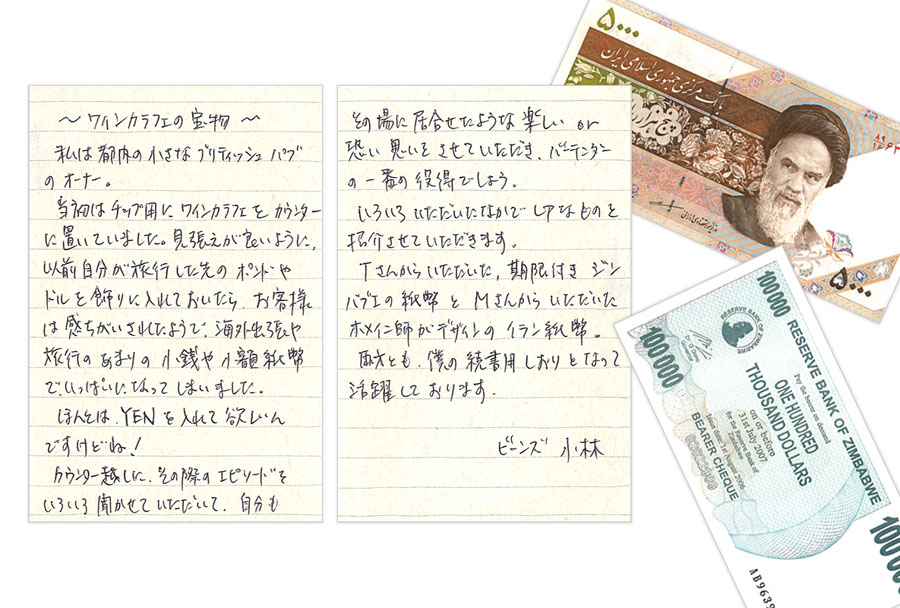 ～ワインカラフェの宝物～
私は都内の小さなブリティッシュパブ
のオーナー。
当初はチップ用にワインカラフェをカウンター
に置いていました。見張えが良いように、
以前自分が旅行した先のポンドや
ドルを飾りに入れておいたら、お客様
は感ちがいされたようで、海外出張や
旅行のあまりの小銭や小額紙幣
でいっぱいになってしまいました。
ほんとは、YENを入れて欲しいん
ですけどね！
カウンター越しに、その際のエピソードを
いろいろ聞かせていただいて、自分も
その場に居合せたような楽しい or
恐い思いをさせていただき、バーテンダー
の一番の役得でしょう。
いろいろいただいたなかでレアなものを
紹介させていただきます。
Tさんからいただいた、期限付きジン
バブエの紙幣とMさんからいただいた
ホメイニ師がデザインのイラン紙幣。
両方とも、僕の読書用しおりとなって
活躍しております。
ビーンズ 小林
۵۰۰۰
بانک مرکزی جمهوری اسلامی ایران
پنج هزار ریال
۵۰۰۰
100000
RESERVE BANK OF ZIMBABWE
RESERVE BANK OF ZIMBABWE
Pay the bearer on demand
ONE HUNDRED
THOUSAND DOLLARS
on or before
31st July 2007
for the Reserve
Bank of Zimbabwe
Issue date: 1st August 2006
BEARER CHEQUE
100000
100
AB9639